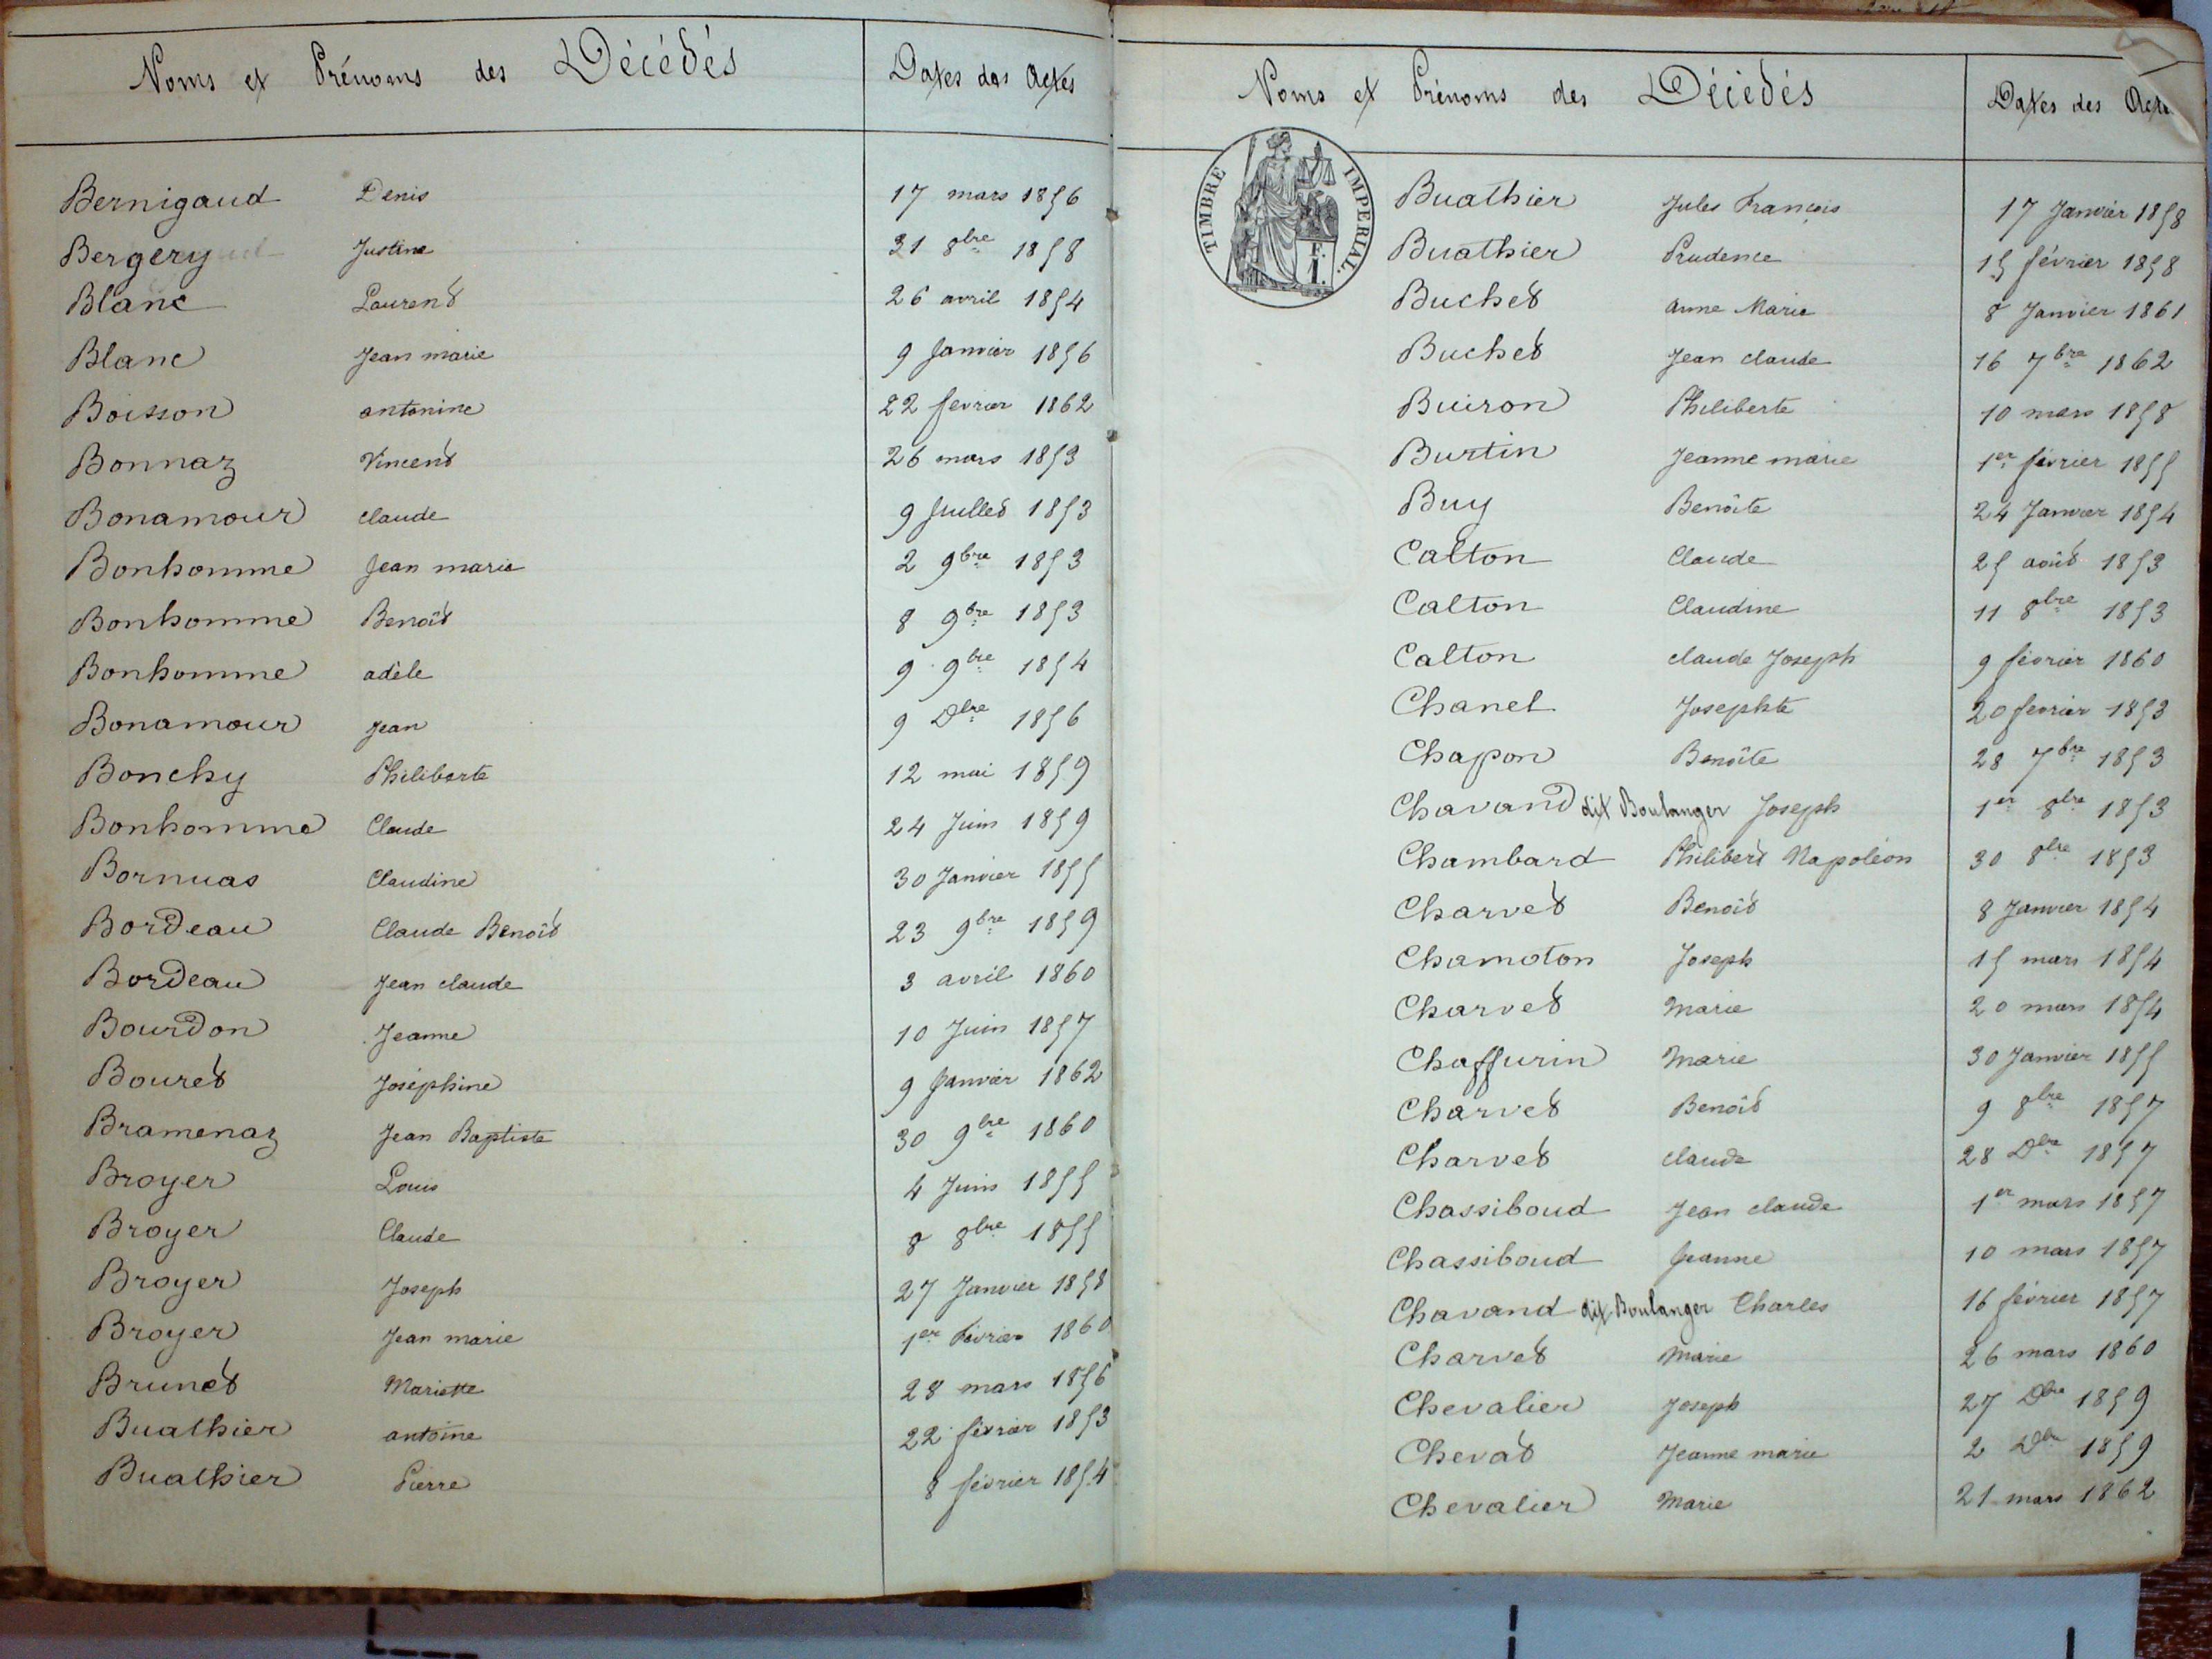 Noms et Prénoms des Décédés Dates des Actes
Bernigaud Denis 17 mars 1856
Bergery Justine 31 8bre 1858
Blanc Laurent 26 avril 1854
Blanc Jean marie 9 Janvier 1856
Boisson antonine 22 fevrier 1862
Bonnaz Vincent 26 mars 1853
Bonamour claude 9 Juillet 1853
Bonhomme Jean marie 2 9bre 1853
Bonhomme Benoît 8 9bre 1853
Bonhomme adèle 9 9bre 1854
Bonamour Jean 9 Dbre 1856
Bonchy Philiberte 12 mai 1859
Bonhomme Claude 24 Juin 1859
Bornuas Claudine 30 Janvier 1855
Bordeau Claude Benoît 23 9bre 1859
Bordeau Jean claude 3 avril 1860
Bourdon Jeanne 10 Juin 1857
Bouret Joséphine 9 Janvier 1862
Bramenaz Jean Baptiste 30 9bre 1860
Broyer Louis 4 Juin 1855
Broyer Claude 8 8bre 1855
Broyer Joseph 27 Janvier 1858
Broyer Jean marie 1er Février 1860
Brunet Mariette 28 mars 1856
Buathier antoine 22 février 1853
Buathier Pierre 8 février 1854
Noms et Prénoms des Décédés Dates des Actes
TIMBRE IMPERIAL.
F.
1.
Buathier Jules François 17 Janvier 1858
Buathier Prudence 15 février 1858
Buchet anne Marie 8 Janvier 1861
Buchet Jean claude 16 7bre 1862
Buiron Philiberte 10 mars 1858
Burtin Jeanne marie 1er février 1855
Buy Benoîte 24 Janvier 1854
Calton Claude 25 août 1853
Calton Claudine 11 8bre 1853
Calton claude Joseph 9 février 1860
Chanel Josephte 20 fevrier 1853
Chapon Benoîte 28 7bre 1853
Chavand dit Boulanger Joseph 1er 8bre 1853
Chambard Philibert Napoléon 30 8bre 1853
Charvet Benoît 8 Janvier 1854
Chamoton Joseph 15 mars 1854
Charvet Marie 20 mars 1854
Chaffurin Marie 30 Janvier 1855
Charvet Benoît 9 8bre 1857
Charvet claude 28 Dbre 1857
Chassiboud Jean claude 1er mars 1857
Chassiboud Jeanne 10 mars 1857
Chavand dit Boulanger Charles 16 février 1857
Charvet Marie 26 mars 1860
Chevalier Joseph 27 Dbre 1859
Chevat Jeanne marie 2 Dbre 1859
Chevalier Marie 21 mars 1862